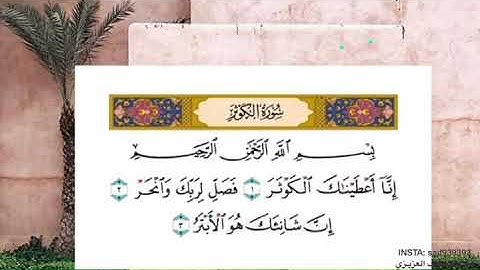 سُورَةُ الكَوْثَرِ
بِسْمِ اللَّهِ الرَّحْمَٰنِ الرَّحِيمِ
إِنَّا أَعْطَيْنَاكَ الْكَوْثَرَ ١ فَصَلِّ لِرَبِّكَ وَانْحَرْ ٢
إِنَّ شَانِئَكَ هُوَ الْأَبْتَرُ ٣
INSTA:
العزيزي